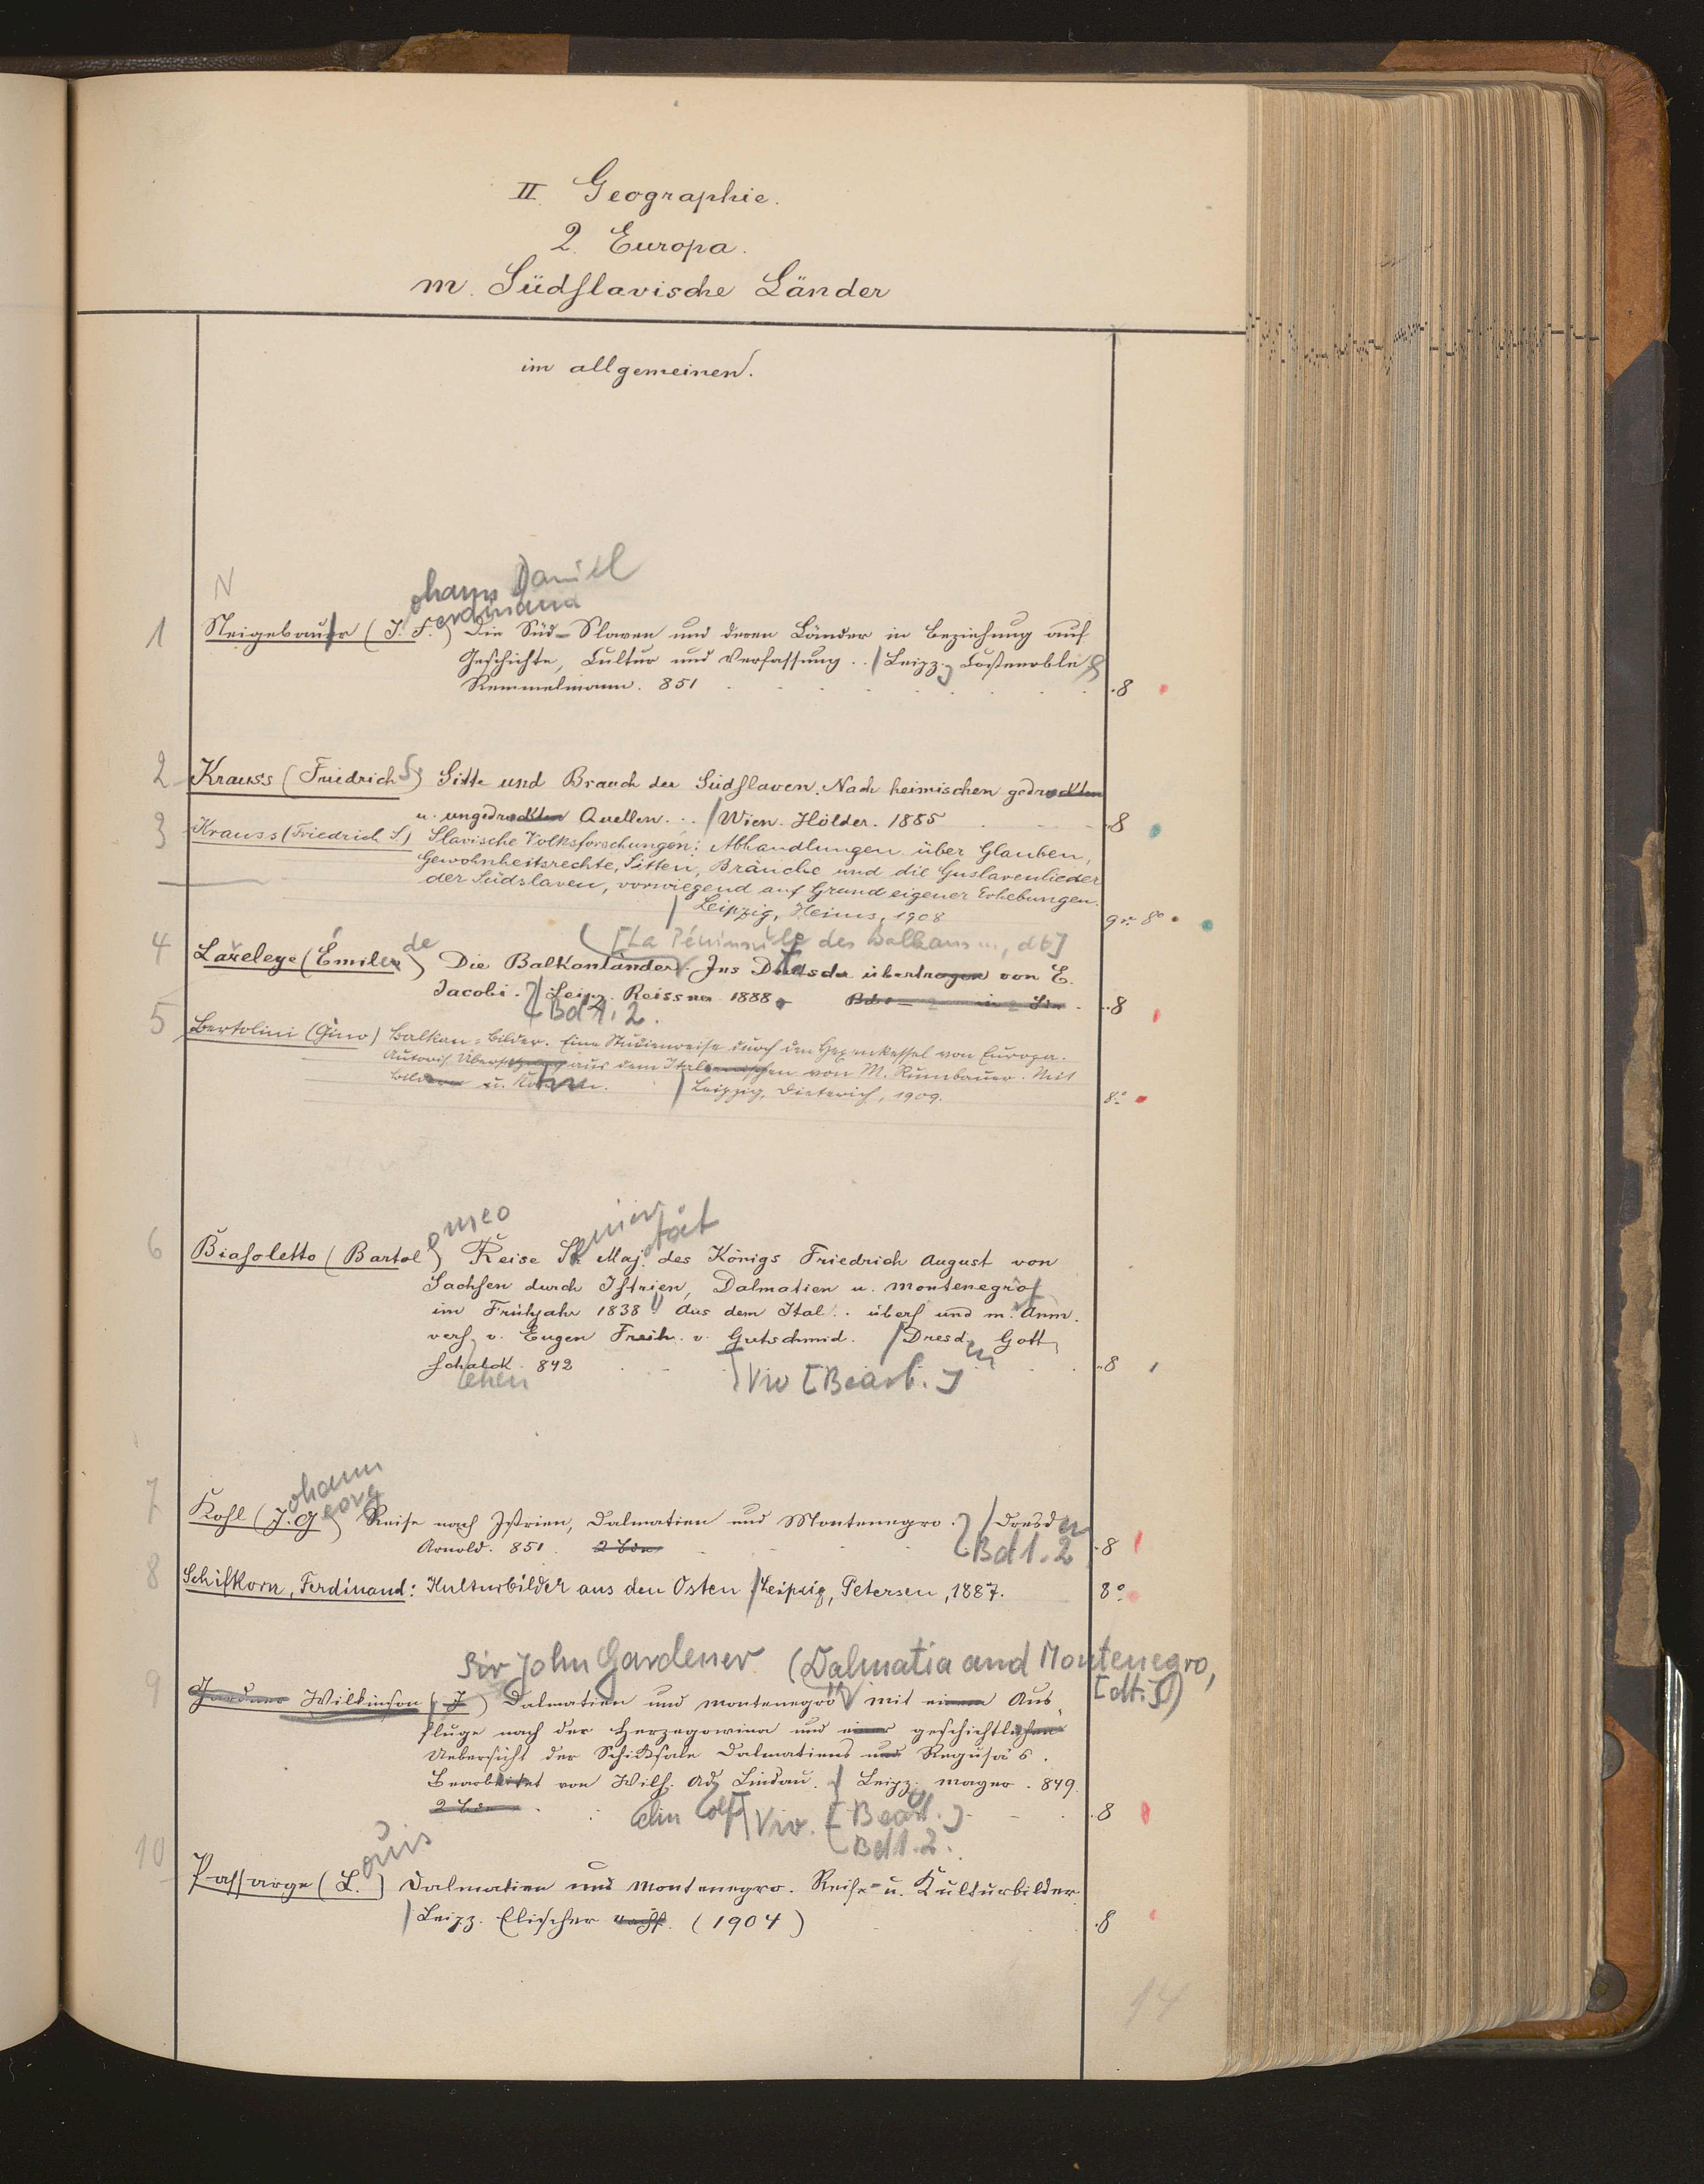 II. Geographie.
2. Europa.
m. Südslavische Länder
im allgemeinen.
N
ohann Daniel
erdinand
1 Neigebauer (J. F.) Die Süd-Slaven und deren Länder in Beziehung auf
Geschichte, Cultur und Verfassung .. / Leipz., Costenoble &
Remmelmann. 851 . 8
2 Krauss (Friedrich S.) Sitte und Brauch der Südslaven. Nach heimischen gedruckten
u. ungedruckten Quellen ... / Wien. Hölder. 1885 . 8
3 Krauss (Friedrich S.) Slavische Volksforschungen: Abhandlungen über Glauben,
Gewohnheitsrechte, Sitten, Bräuche und die Guslarenlieder
der Südslaven, vorwiegend auf Grund eigener Erhebungen.
/ Leipzig, Heims, 1908 gr. 8°
de ([La Péninsule des Balkans ..., dt.]
4 Laveleye (Émile) Die Balkanländer. Ins Deutsche übertragen von E.
Jacobi. / Leipz. Reissner 1888. .. 8
Bd 1. 2.
5 Bertolini (Gino) Balkan-Bilder. Eine Studienreise durch den Hexenkessel von Europa.
Autoris. Übersetzung aus dem Italienischen von M. Rumbauer. Mit
Bildern u. Karten. / Leipzig, Dieterich, 1909. 8°
omeo einer stät
6 Biasoletto (Bartol.) Reise Sr. Maj. des Königs Friedrich August von
Sachsen durch Istrien, Dalmatien u. Montenegro
im Frühjahr 1838. Aus dem Ital. .. übers. und m. Anm.
vers. v. Eugen Freih. v. Gutschmid. / Dresden Gott
schalck. 842 .. 8
ehen
Vw [Bearb.]
ohann
eorg
7 Kohl (J. G.) Reise nach Istrien, Dalmatien und Montenegro. / Dresden
Arnold. 851. 2 Bde . 8
Bd 1. 2
8 Schifkorn, Ferdinand: Kulturbilder aus den Osten / Leipzig, Petersen, 1887. 8°
Sir John Gardener (Dalmatia and Montenegro,
[dt.])
9 Gardner Wilkinson (J) Dalmatien und Montenegro mit einem Aus
fluge nach der Herzegowina und einer geschichtlichen
Uebersicht der Schicksale Dalmatiens und Ragusa's.
Bearbeitet von Wilh. Ad. Lindau. / Leipz. Mayer. 849.
2 Bde . 8
elm olf Vw. [Bearb.]
Bd 1. 2.
ouis
10 Passarge (L.) Dalmatien und Montenegro. Reise- u. Kulturbilder
/ Leipz. Elischer Nachf. (1904) . 8
14